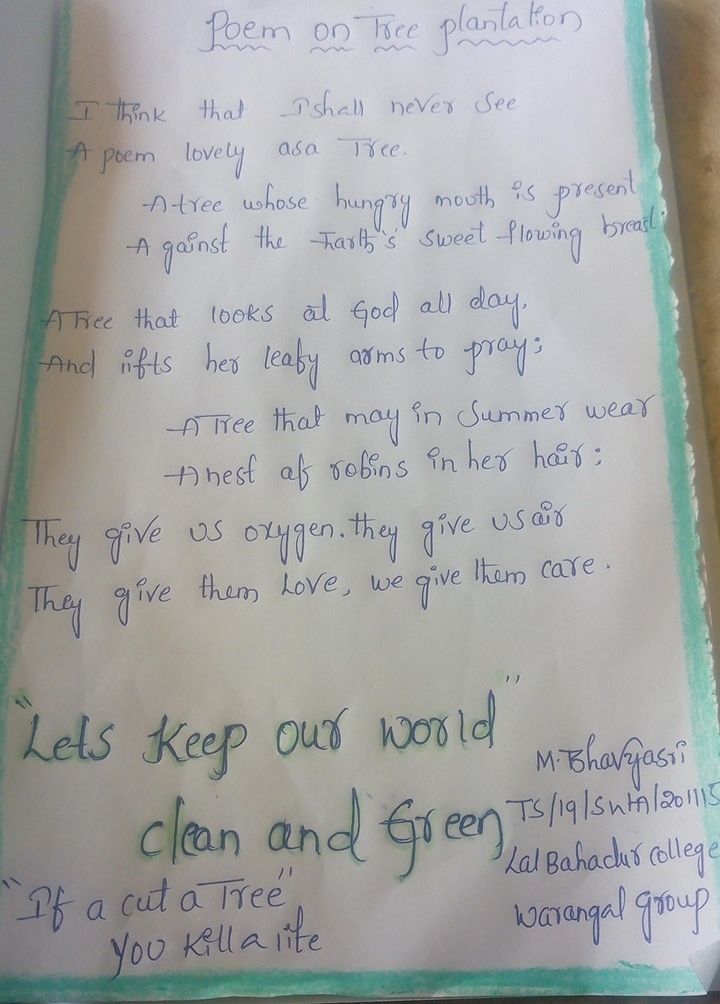 Poem on Tree plantation
I Think that I shall never see
A poem lovely as a Tree.
A tree whose hungry mouth is present
A gainst the Earth's sweet flowing breast.
A Tree that looks at God all day,
And lifts her leafy arms to pray;
A Tree that may in Summer wear
A nest of robins in her hair;
They give us oxygen. they give us air
They give them Love, we give them care.
"Lets Keep our world"
clean and Green
"If a cut a Tree"
You Kill a life
M. Bhavyasri
Lal Bahadur college
Warangal group